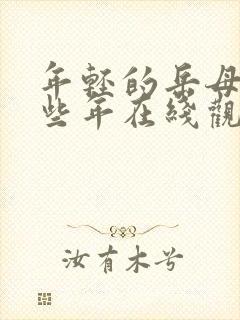 年轻的岳母
些年在线觀
汝有木兮